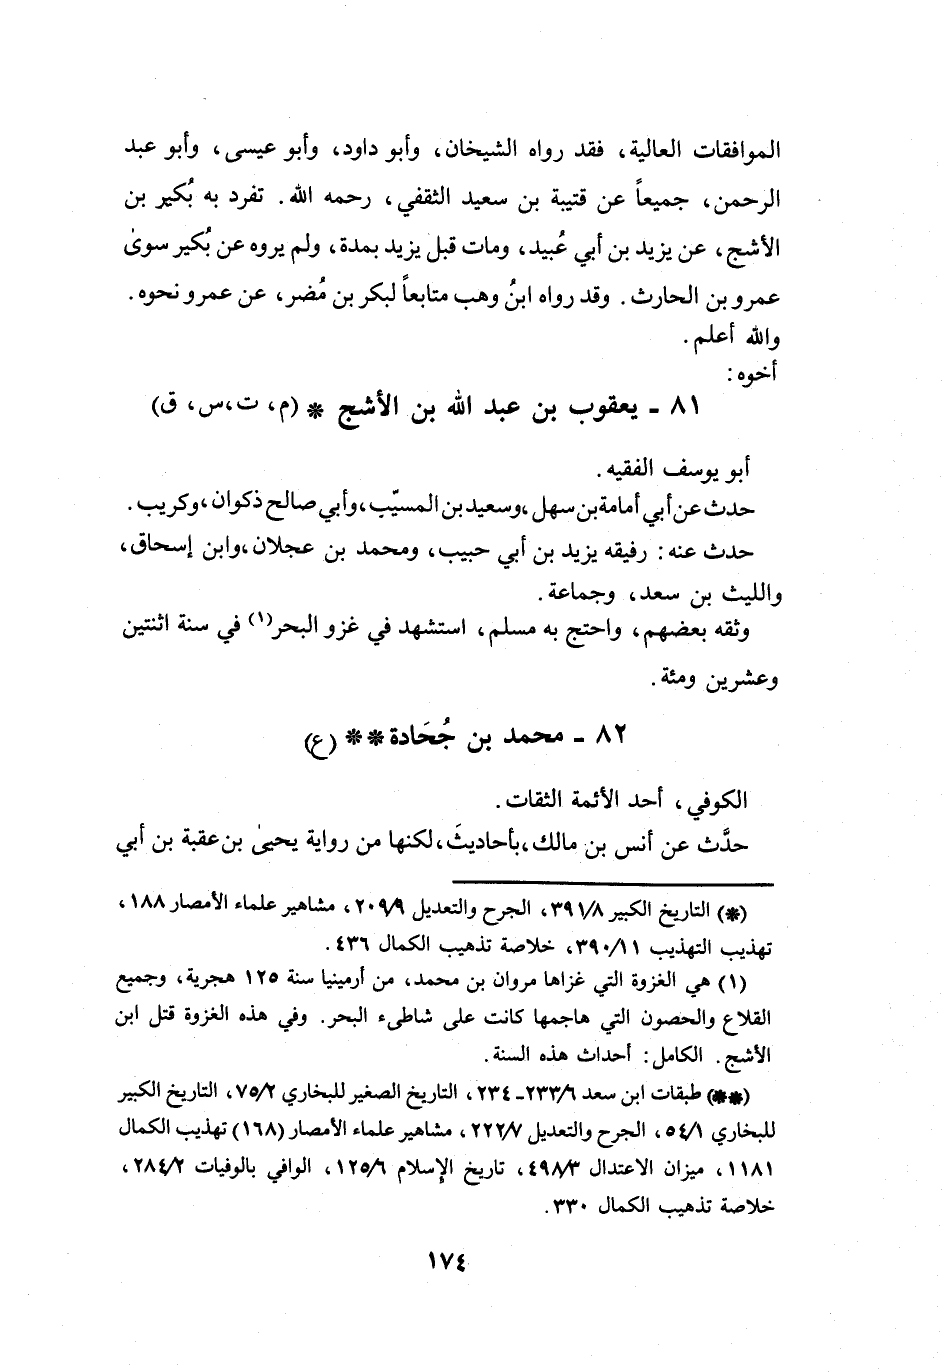 الموافقات العالية، فقد رواه الشيخان، وأبو داود، وأبو عيسى، وأبو عبد
الرحمن، جميعاً عن قتيبة بن سعيد الثقفي، رحمه الله. تفرد به بُكير بن
الأشج، عن يزيد بن أبي عُبيد، ومات قبل يزيد بمدة، ولم يروه عن بُكير سوىٰ
عمرو بن الحارث. وقد رواه ابنُ وهب متابعاً لبكر بن مُضر، عن عمرو نحوه.
والله أعلم.
أخوه:
٨١ - يعقوب بن عبد الله بن الأشج * (م، ت،س، ق)
أبو يوسف الفقيه.
حدث عن أبي أمامة بن سهل، وسعيد بن المسيّب، وأبي صالح ذكوان، وكريب.
حدث عنه: رفيقه يزيد بن أبي حبيب، ومحمد بن عجلان، وابن إسحاق،
والليث بن سعد، وجماعة.
وثقه بعضهم، واحتج به مسلم، استشهد في غزو البحر(١) في سنة اثنتين
وعشرين ومئة.
٨٢ - محمد بن جُحَادة ** (ع)
الكوفي، أحد الأئمة الثقات.
حدَّث عن أنس بن مالك، بأحاديثَ، لكنها من رواية يحيىٰ بن عقبة بن أبي
(*) التاريخ الكبير ٣٩١/٨، الجرح والتعديل ٢٠٩/٩، مشاهير علماء الأمصار ١٨٨،
تهذيب التهذيب ٣٩٠/١١، خلاصة تذهيب الكمال ٤٣٦.
(١) هي الغزوة التي غزاها مروان بن محمد، من أرمينيا سنة ١٢٥ هجرية، وجميع
القلاع والحصون التي هاجمها كانت على شاطىء البحر. وفي هذه الغزوة قتل ابن
الأشج. الكامل: أحداث هذه السنة.
(**) طبقات ابن سعد ٢٣٣/٦-٢٣٤، التاريخ الصغير للبخاري ٧٥/٢، التاريخ الكبير
للبخاري ٥٤/١، الجرح والتعديل ٢٢٢/٧، مشاهير علماء الأمصار (١٦٨) تهذيب الكمال
١١٨١، ميزان الاعتدال ٤٩٨/٣، تاريخ الإسلام ١٢٥/٦، الوافي بالوفيات ٢٨٤/٢،
خلاصة تذهيب الكمال ٣٣٠.
١٧٤